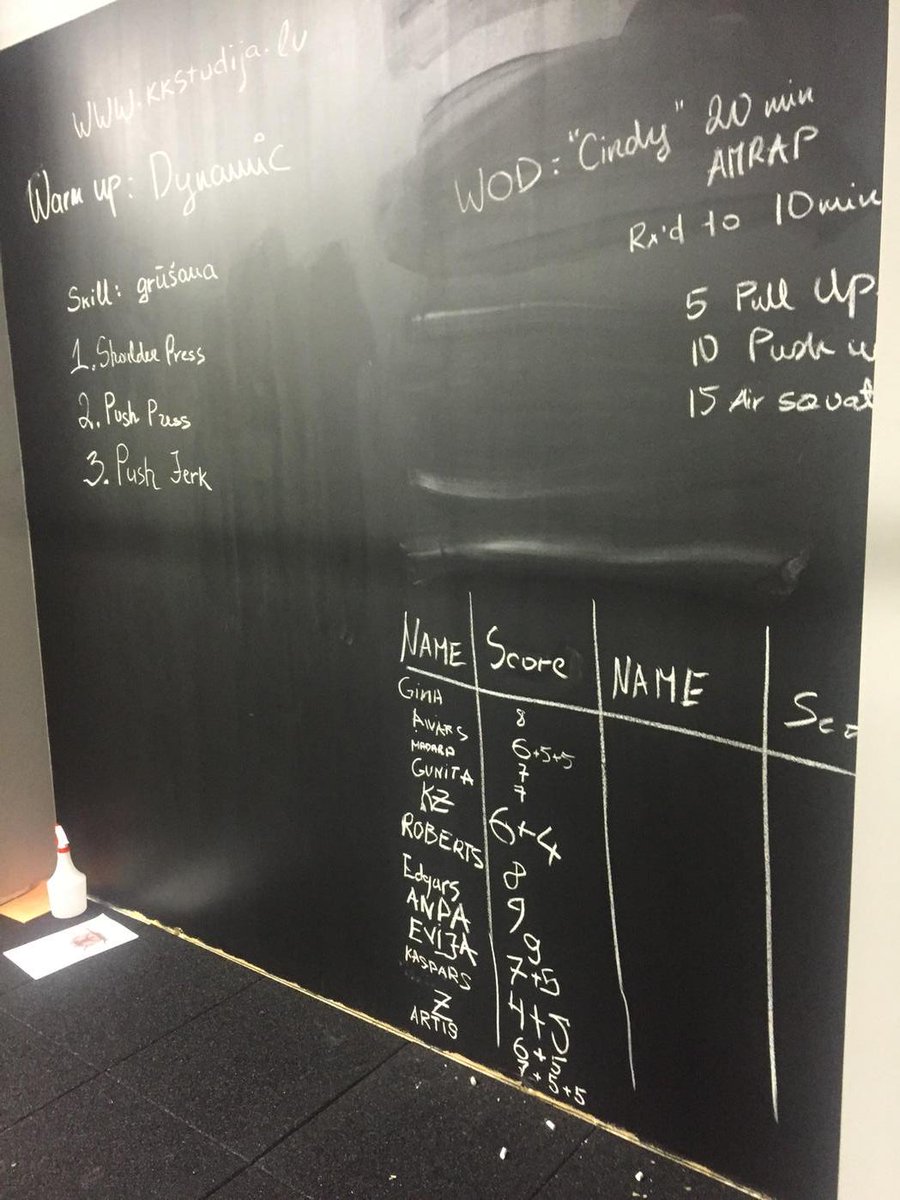 www.kkstudija.lv
Warm up: Dynamic
Skill: grūšana
1. Shoulder Press
2. Push Press
3. Push Jerk
WOD: "Cindy" 20 min
AMRAP
Rx'd to 10 min
5 Pull Up
10 Push u
15 Air squat
NAME Score NAME Sco
GinA 8
AIVARS 6+5+5
MADARA 7
GUNITA 7
KZ 6+4
ROBERTS 8
Edgars 9
ANDA 9
EVIJA 7+5
KASPARS 4+5
Z 6+5
ARTIS 7+5+5